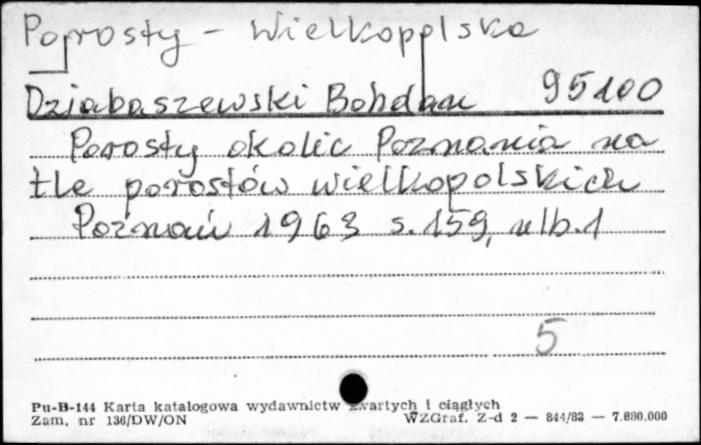 Porosty - Wielkopolska
Dziabaszewski Bohdan 95100
Porosty okolic Poznania na
tle porostów wielkopolskich
Poznań 1963 s. 159, nlb. 1
5
Pu-B-144 Karta katalogowa wydawnictw zwartych i ciągłych
Zam. nr 136/DW/ON WZGraf. Z-d 2 — 844/83 — 7.880.000